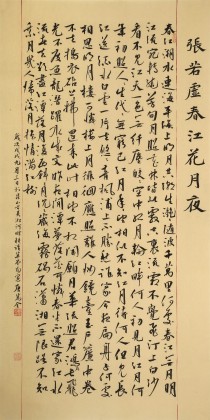 張若虛春江花月夜
春江潮水連海平海上明月共潮生灩灩隨波千萬里何處春江無月明
江流宛轉繞芳甸月照花林皆似霰空裏流霜不覺飛汀上白沙
看不見江天一色無纖塵皎皎空中孤月輪江畔何人初見月江月何
年初照人人生代代無窮已江月年年祇相似不知江月待何人但見長
江送流水白雲一片去悠悠青楓浦上不勝愁誰家今夜扁舟子何處
相思明月樓可憐樓上月徘徊應照離人妝鏡臺玉戶簾中卷
不去擣衣砧上拂還來此時相望不相聞願逐月華流照君鴻雁長飛
光不度魚龍潛躍水成文昨夜閒潭夢落花可憐春半不還家江水
流春去欲盡江潭落月復西斜斜月沉沉藏海霧碣石瀟湘無限路不知
乘月幾人歸落月搖情滿江樹